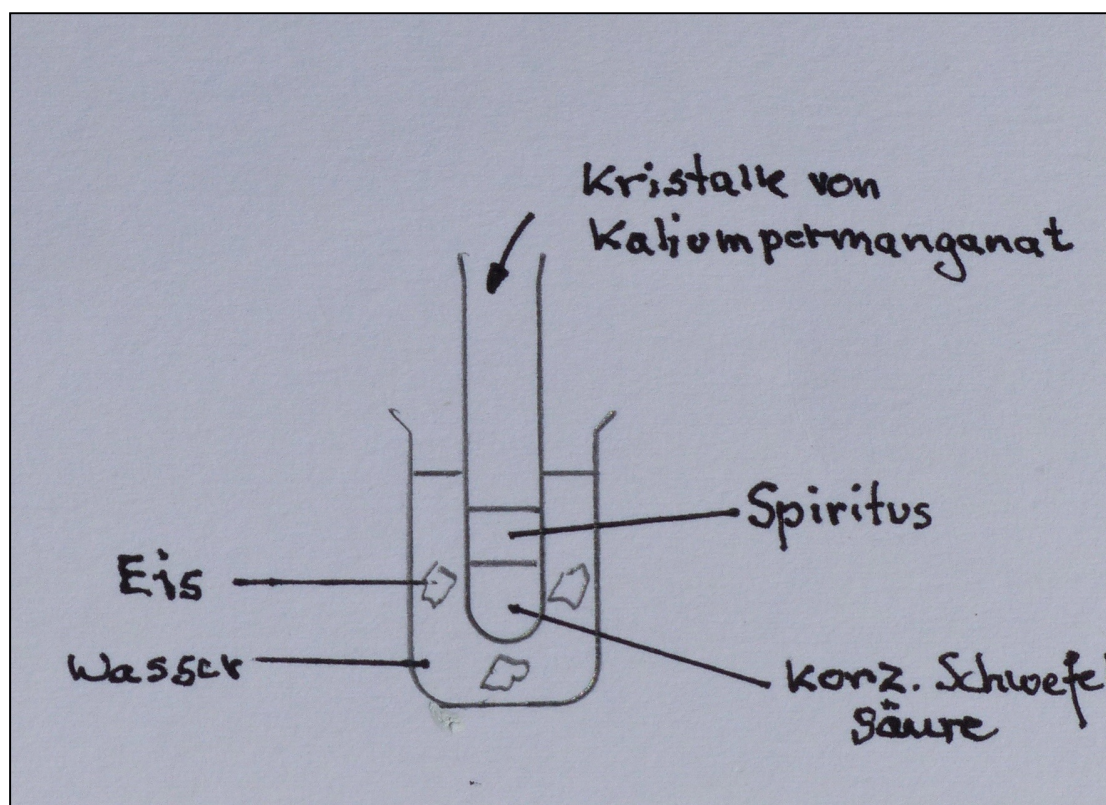 Kristalle von
Kaliumpermanganat
Spiritus
Eis
Wasser
Konz. Schwefel
säure